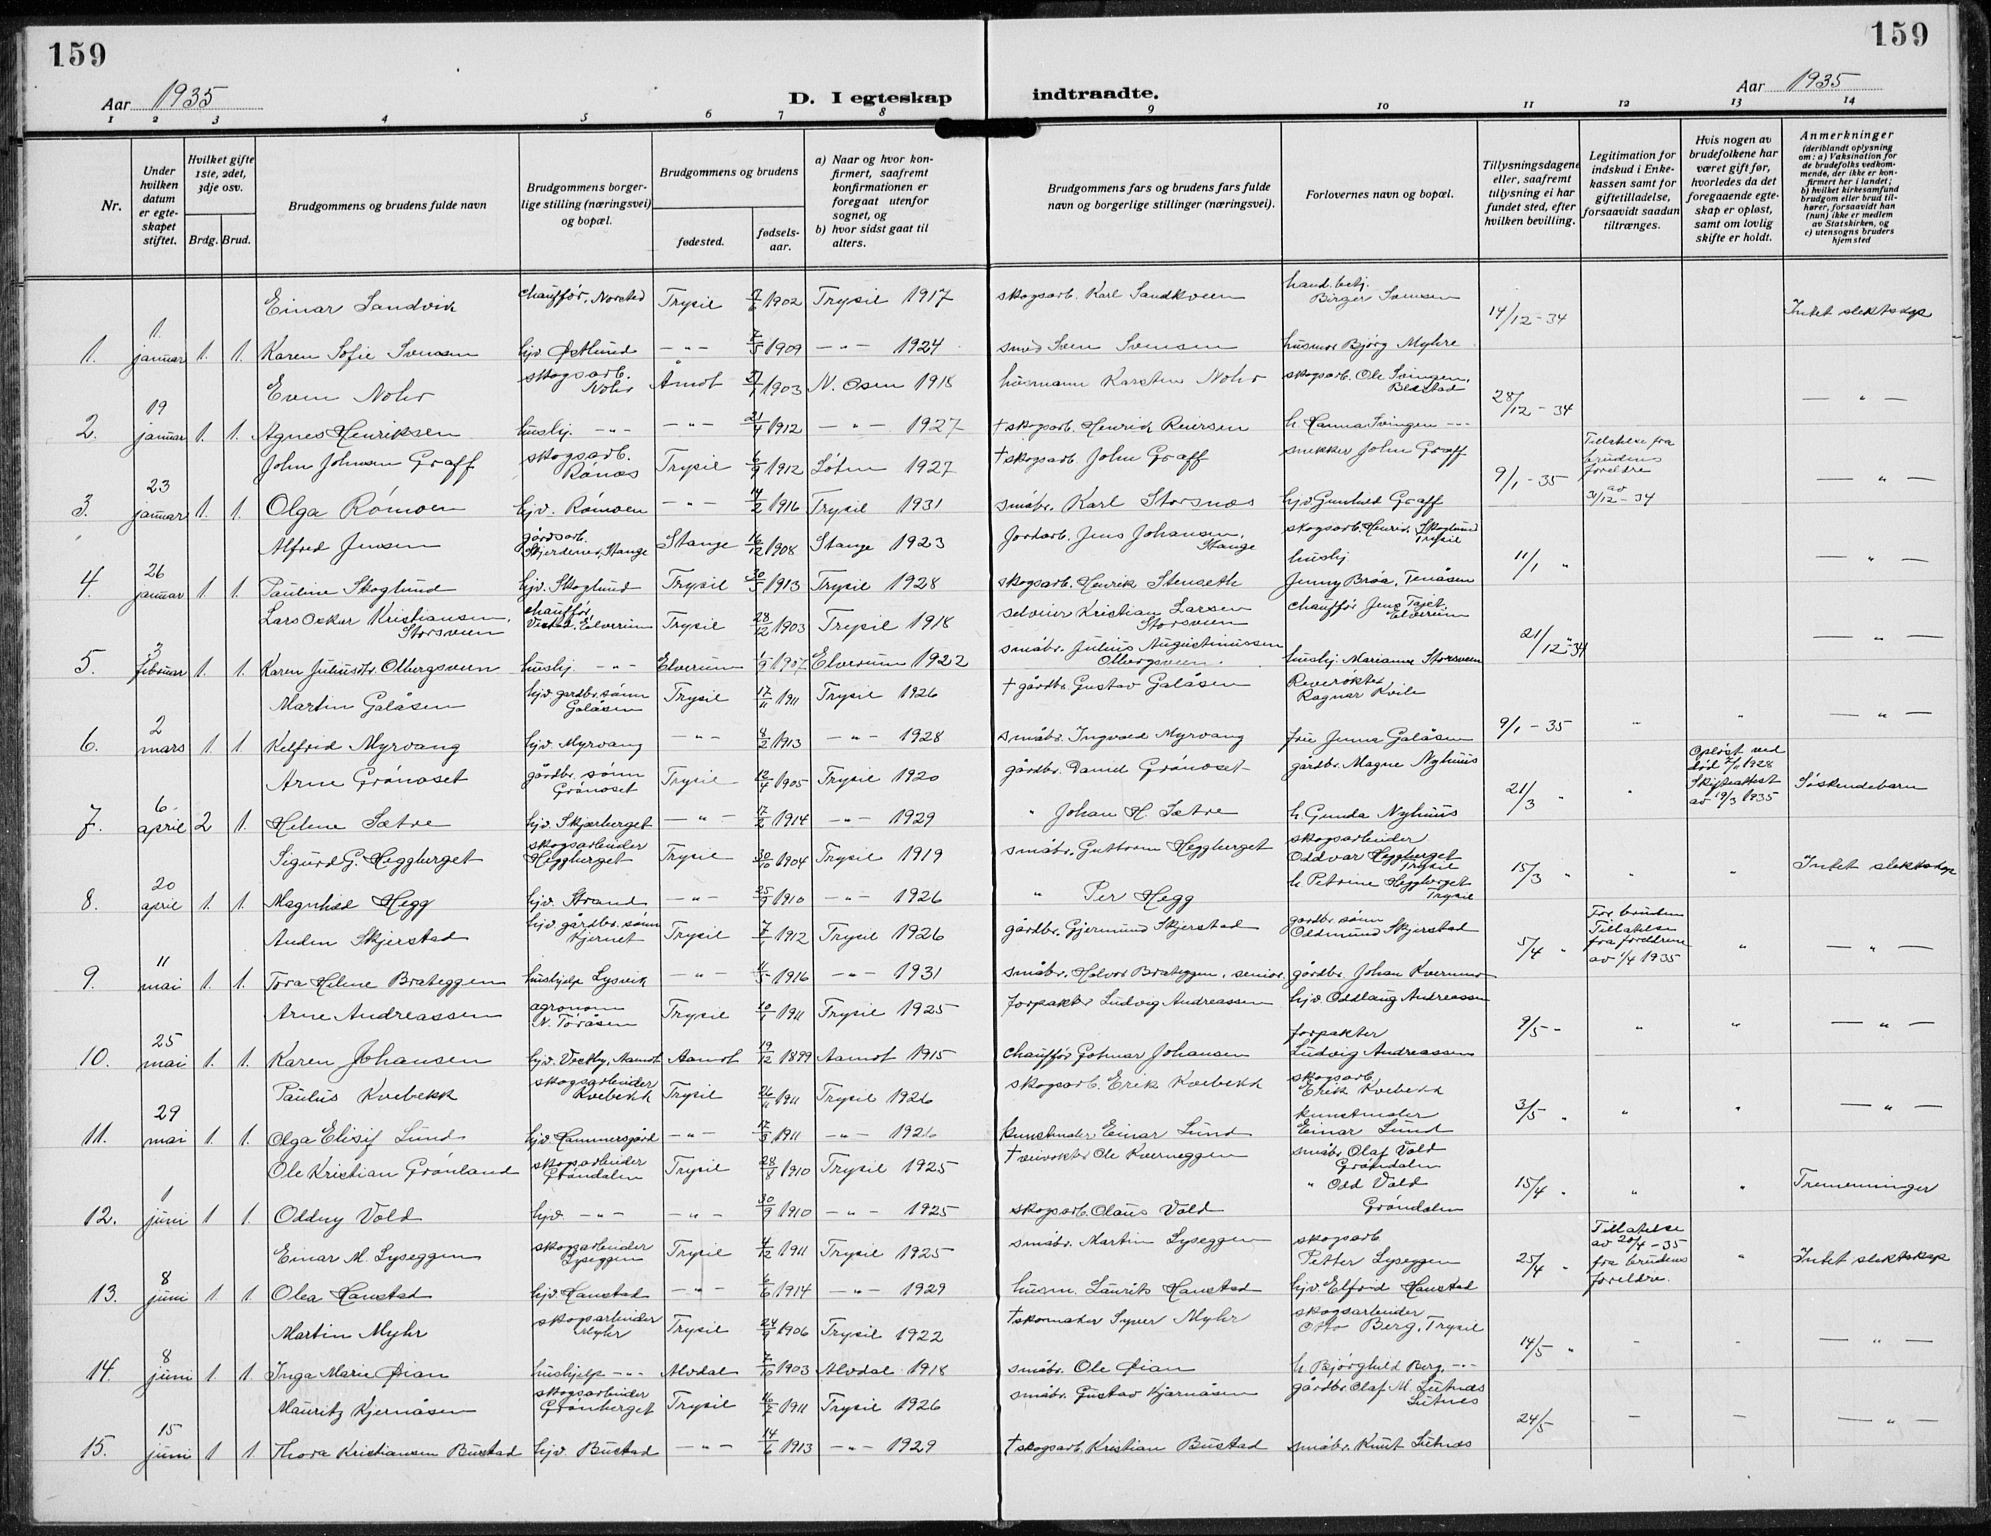 159
159
Aar 1935
D. I egteskap indtraadte.
Aar 1935
1 2 3 4 5 6 7 8 9 10 11 12 13 14
Nr.
Under hvilken datum er egteskapet stiftet.
Hvilket gifte 1ste, 2det, 3dje osv.
Brdg. Brud.
Brudgommens og brudens fulde navn
Brudgommens borgerlige stilling (næringsvei) og bopæl.
Brudgommens og brudens
fødested.
fødselsaar.
a) Naar og hvor konfirmert, saafremt konfirmationen er foregaat utenfor sognet, og
b) hvor sidst gaat til alters.
Brudgommens fars og brudens fars fulde navn og borgerlige stillinger (næringsvei).
Forlovernes navn og bopæl.
Tillysningsdagene eller, saafremt tillysning ei har fundet sted, efter hvilken bevilling.
Legitimation for indskud i Enkekassen samt for giftetilladelse, forsaavidt saadan tiltrænges.
Hvis nogen av brudefolkene har været gift før, hvorledes da det foregaaende egteskap er opløst, samt om lovlig skifte er holdt.
Anmerkninger (deriblandt oplysning om: a) Vaksination for de brudefolks vedkommende, der ikke er konfirmert her i landet; b) hvilket kirkesamfund brudgom eller brud tilhører, forsaavidt han (hun) ikke er medlem av Statskirken, og c) utensogns bruders hjemsted
Einar Sandvik chauffør, Norsted Trysil 1902 Trysil 1917 skogsarb. Karl Sandkveen hand. betj. Birger Svensen 14/12 - 34 Intet slektskap
1. 1 januar 1. 1. Karen Sofie Svensen hjv. Østlund - " - 1909 - " - 1924 smed Sven Svensen husmor Bjørg Myhre
Even Nohr skogsarb. Nohr Åmot 1903 N. Osen 1918 husmann Karsten Nohr skogsarb. Ole Svingen, 28/12 - 34 - " -
2. 19 januar 1. 1. Agnes Henriksen hushj. - " - - " - 21/4 1912 - " - 1927 † skogsarb. Henrik Reiersen h. Hanna Svingen - " -
John Johnsen Graff skogsarb. Rønes Trysil 6/9 1912 Løten 1927 † skogsarb. John Graff snekker John Graff 9/1 - 35 Tillatelse fra brudens foreldre av 31/12 - 34 - " -
3. 23 januar 1. 1. Olga Rømoen hjv. Rømoen - " - 14/2 1916 Trysil 1931 småbr. Karl Storsnes hjv Gunhild Graff
Alfred Jensen gårdsarb. Stange Stange 16/12 1908 Stange 1923 Jordarb. Jens Johansen, Stange skogsarb. Henrik Skoglund Trysil 11/1 " - " -
4. 26 januar 1 1. Pauline Skoglund hjv. Skoglund Trysil 30/5 1913 Trysil 1928 skogsarb. Henrik Stenseth hushj. Jenny Bröa, Tenåsen
Lars Oskar Kristiansen, Storsveen chauffør Vestad, Elverum Trysil 28/12 1903 Trysil 1918 selveier Kristian Larsen Storsveen chauffør Jens Tajet Elverum 21/12 - 34 - " -
5. 3 februar 1. 1. Karen Juliusdtr. Olbergsveen hushj. - " - Elverum 1/9 1907 Elverum 1922 småbr. Julius Augustinussen Olbergsveen. hushj. Marianne Storsveen
Martin Galåsen hjv. gardbr. sønn Galåsen Trysil 17/11 1911 Trysil 1926 † gårdbr. Gustav Galåsen Reverøkter Ragnar Kvile 9/1 - 35 " " - " -
6. 2 mars 1. 1. Kelfrid Myrvang hjv. Myrvang - " - 8/2 1913 - " - 1928 småbr. Ingvald Myrvang fru Jenny Galåsen
Arne Grønoset gårdbr. sønn Grønoset Trysil 12/4 1905 Trysil 1920 gårdbr. Daniel Grønoset gårdbr. Magne Nyhuus 21/3 " " Opløst ved død 1928 Skifteattest av 19/3 1935 Søskendebarn
7. 6. april 2 1. Helene Sætre hjv. Skjærberget - " - 17/2 1914 - " - 1929 " Johan H. Sætre h. Gunda Nyhuus
Sigurd G. Heggberget skogsarbeider Heggberget Trysil 30/10 1904 Trysil 1919 småbr. Guttorm Heggberget skogsarbeider Oddvar Heggberget Trysil 15/3 " " " Intet slektskap
8. 20 april 1. 1. Magnhild Hegg hjv. Strand - " - 25/9 1910 - " - 1926 " Per Hegg h. Petrine Heggberget Trysil
Auden Skjerstad hjv. gårdbr. sønn Kjernet Trysil 7/1 1912 Trysil 1926 gårdbr. Gjermund Skjerstad gardbr. sønn Oddmund Skjerstad 5/4 " For bruden Tillatelse fra foreldrene av 1/4 1935 " - " -
9. 11 mai 1. 1. Tora Helene Brateggen hushjelp Lysvik - " - 11/5 1916 - " - 1931 småbr. Halvor Brateggen, senior. gårdbr. Johan Kvernmo
Arne Andreassen agronom N. Toråsen Trysil 10/1 1911 Trysil 1925 forpakter Ludvig Andreassen hjv Oddlaug Andreassen 9/5 - " " - " -
10. 25 mai 1. 1. Karen Johansen hjv. Vestby, Aamot Aamot 19/12 1899 Aamot 1915 chauffør Gotmar Johansen forpakter Ludvig Andreassen
Paulus Kvebekk skogsarbeider Kvebekk Trysil 26/11 1911 Trysil 1926 skogsarb. Erik Kvebekk skogsarb. Erik Kvebekk 3/5 " " " - " -
11. 29 mai 1. 1. Olga Elisif Lund hjv. Hammersgård - " - 17/3 1911 - " - 1926 kunstmaler Einar Lund kunstmaler Einar Lund
Ole Kristian Grønland skogsarbeider Grøndalen Trysil 28/8 1910 Trysil 1925 † veivokter Ole Kverneggen småbr. Olaf Vold Grøndalen 15/4 " " " Tremenninger
12. 1 juni 1 1. Oddny Vold hjv. - " - - " - 30/9 1910 - " - 1925 skogsarb. Olaus Vold " Odd Vold Grøndalen
Einar M. Lyseggen skogsarbeider Lyseggen Trysil 4/12 1911 Trysil 1925 småbr. Martin Lyseggen skogsarb. Petter Lyseggen 25/4 " Tillatelse av 20/4 - 35 fra brudens foreldre. " Intet slektskap
13. 8 juni 1 1. Olea Hanstad hjv. Hanstad - " - 6/6 1914 - " - 1929 husm. Laurits Hanstad hjv. Elfrid Hanstad
Martin Myhr skogsarbeider Myhr Trysil 24/9 1906 Trysil 1922 † skomaker Syver Myhr skogsarbeider Otto Berg, Trysil 14/5 " - - - " -
14. 8 juni 1 1. Inga Marie Øian hushjelp - " - Alvdal 7/10 1903 Alvdal 1918 småbr. Ole Øian h. Bjørghild Berg, - " -
Mauritz Kjernåsen skogsarbeider Grønberget Trysil 1911 Trysil 1926 småbr. Gustav Kjærnåsen gårdbr. Olaf M. Lutnes Lutnes 24/5 - - - " -
15. 15 juni 1 1. Thora Kristiansen Bustad hjv. Bustad - " - 14/6 1913 - " - 1929 † skogsarb. Kristian Bustad småbr. Knut Lutnes